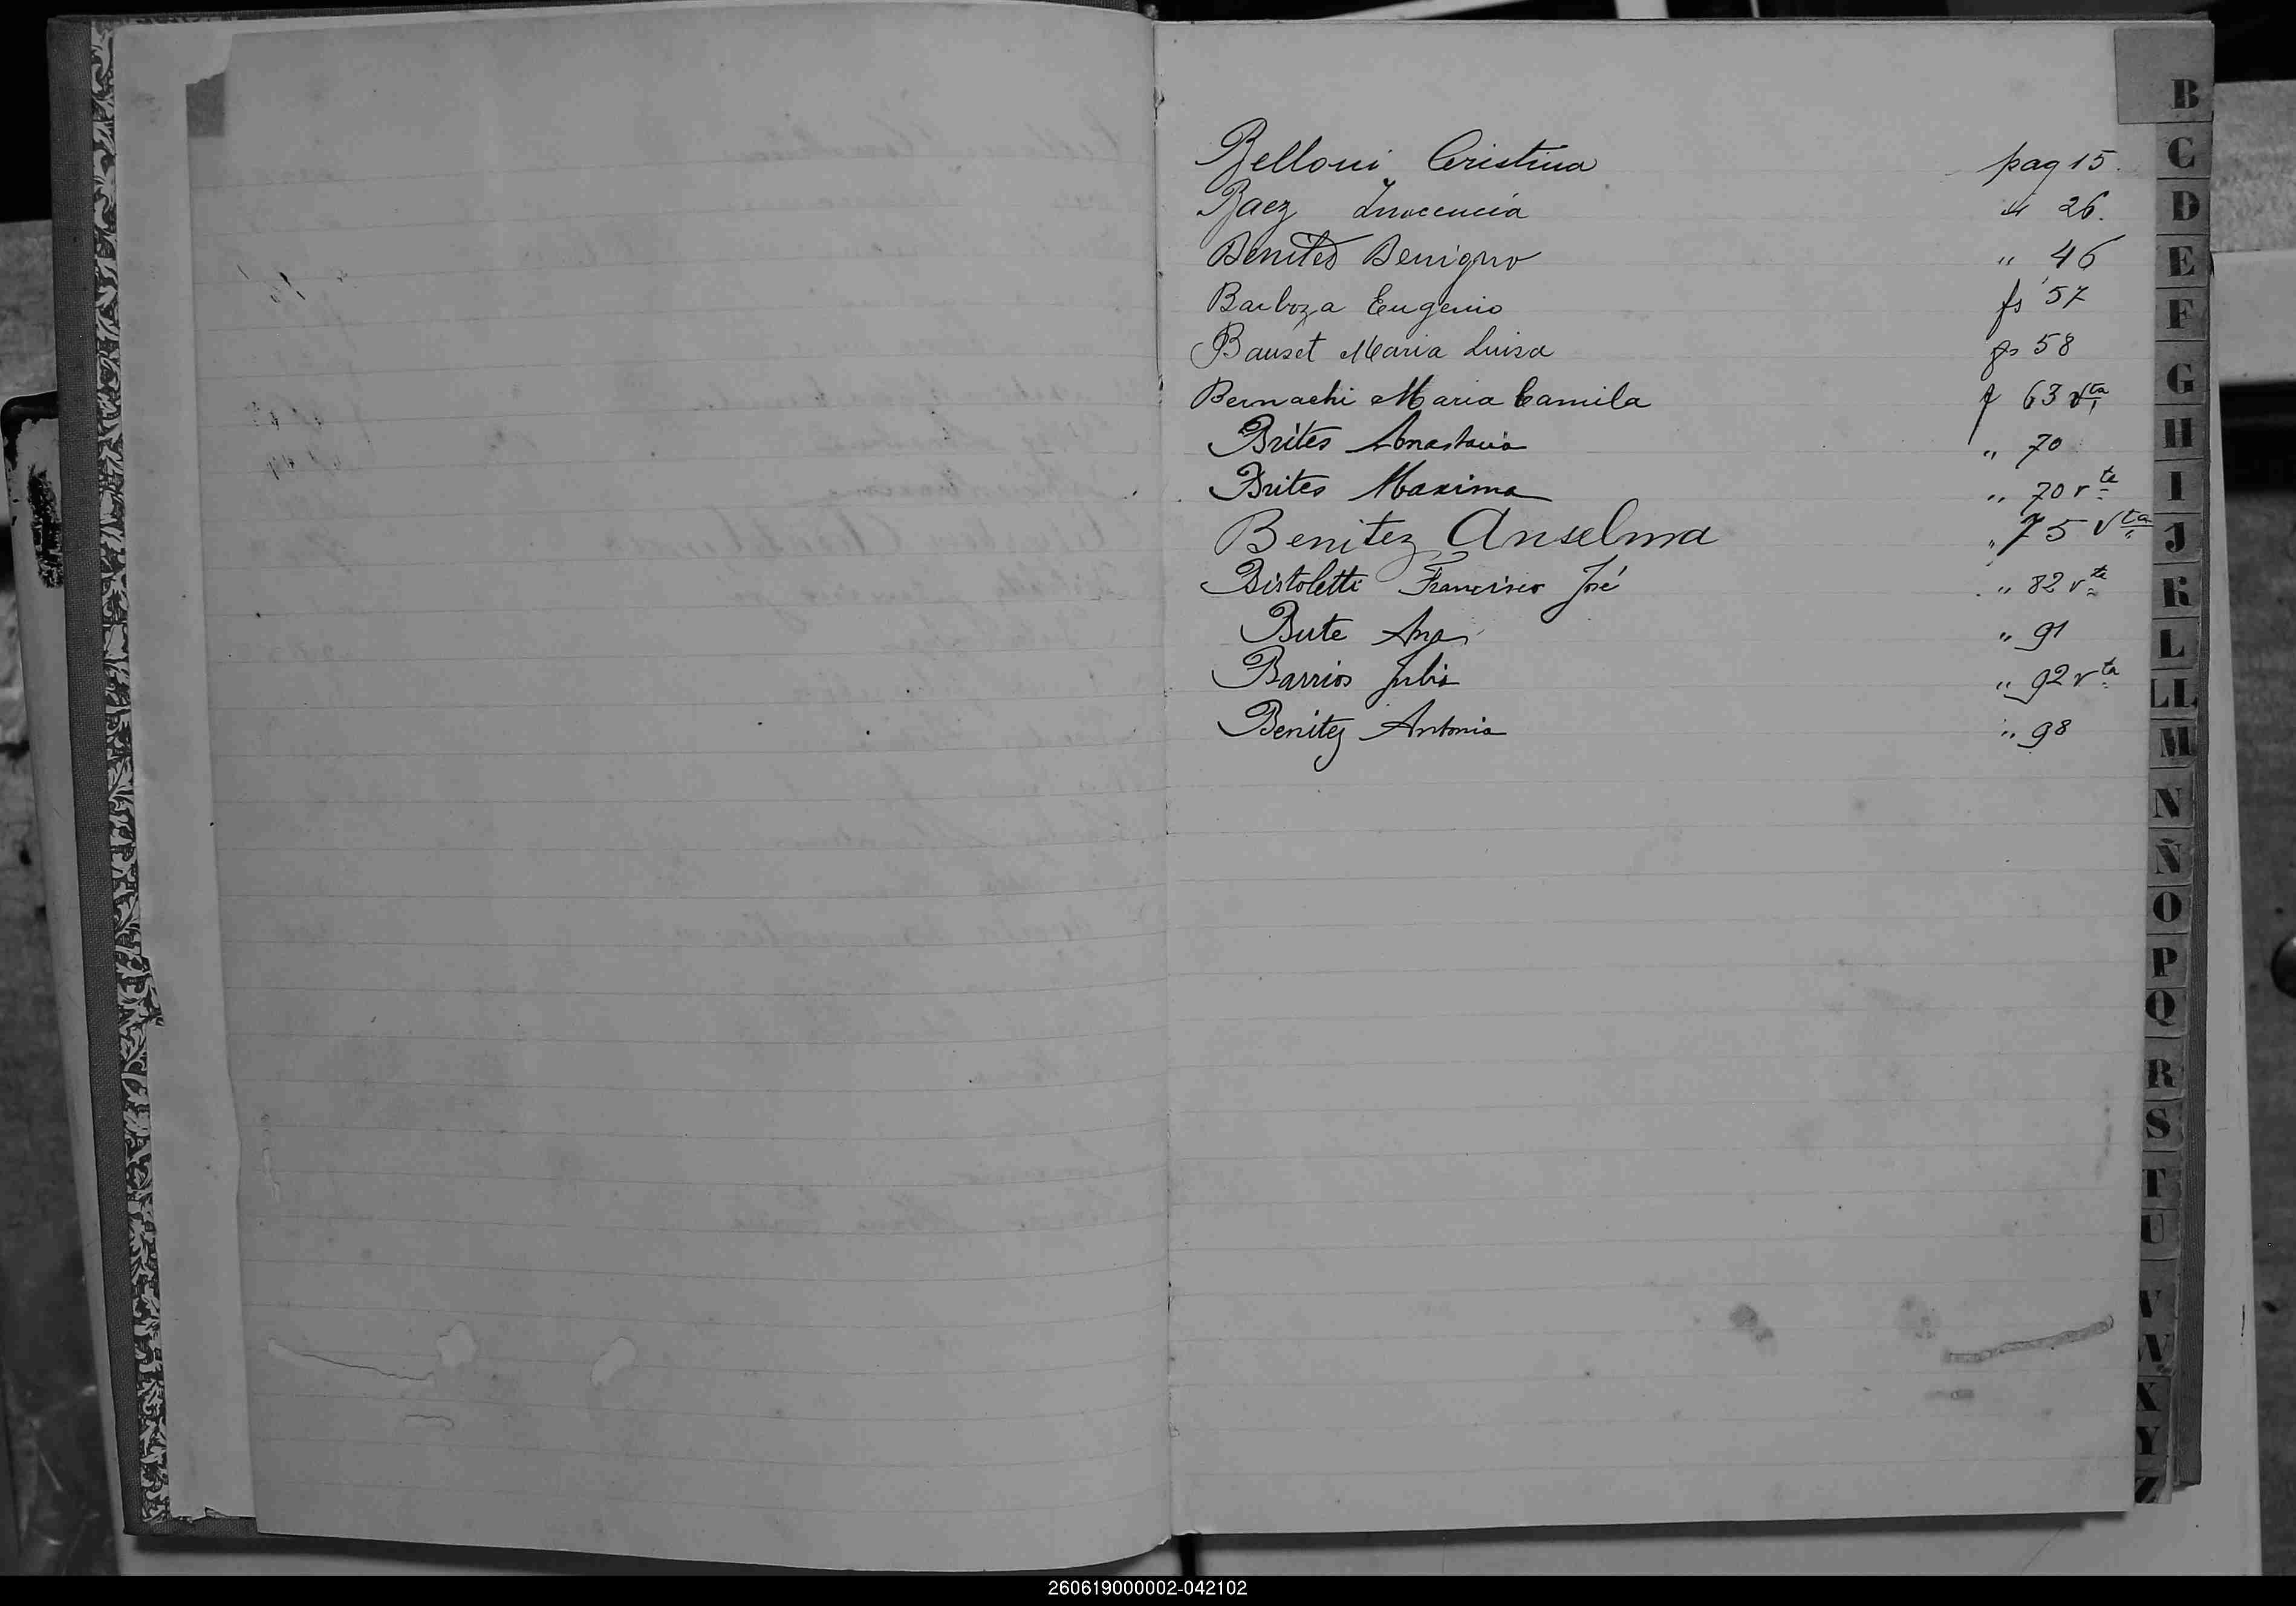 Belloni Cristina pag 15.
Baez Inocencia " 26.
Benites Benigno " 46
Barboza Eugenio fs 57
Bauset Maria Luisa fs 58
Bernachi Maria Camila f 63 vta
Brites Anastacia " 70
Brites Maxima " 70 vta
Benitez Anselma " 75 vta
Bistoletti Francisco José " 82 vta
Bute Ana " 91
Barrios Julia " 92 vta
Benitez Antonia " 98
B
C
D
E
F
G
H
I
J
K
L
LL
M
N
Ñ
O
P
Q
R
S
T
U
V
W
X
Y
Z
260619000002-042102